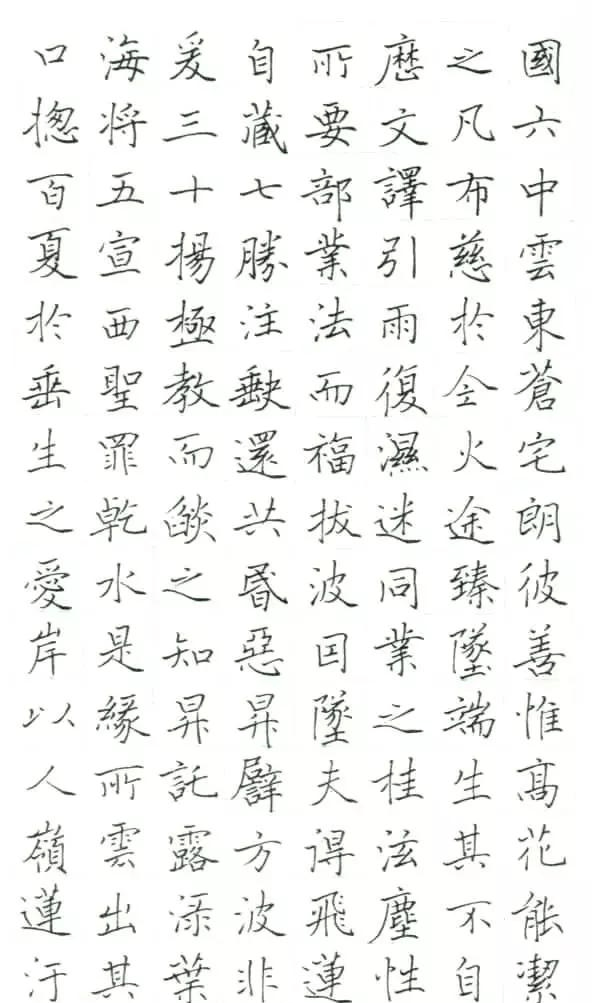 口海爰自所歷之國
揔将三藏要文凡六
百五十七部譯布中
夏宣揚勝業引慈雲
於西極注法雨於東
垂聖教缺而復仝蒼
生罪而還福濕火宅
之乾燄共拔迷途朗
愛水之昬波同臻彼
岸是知惡因業墜善
以緣昇昇墜之端惟
人所託譬夫桂生高
嶺雲露方得泫其花
蓮出淥波飛塵不能
汙其葉非蓮性自潔